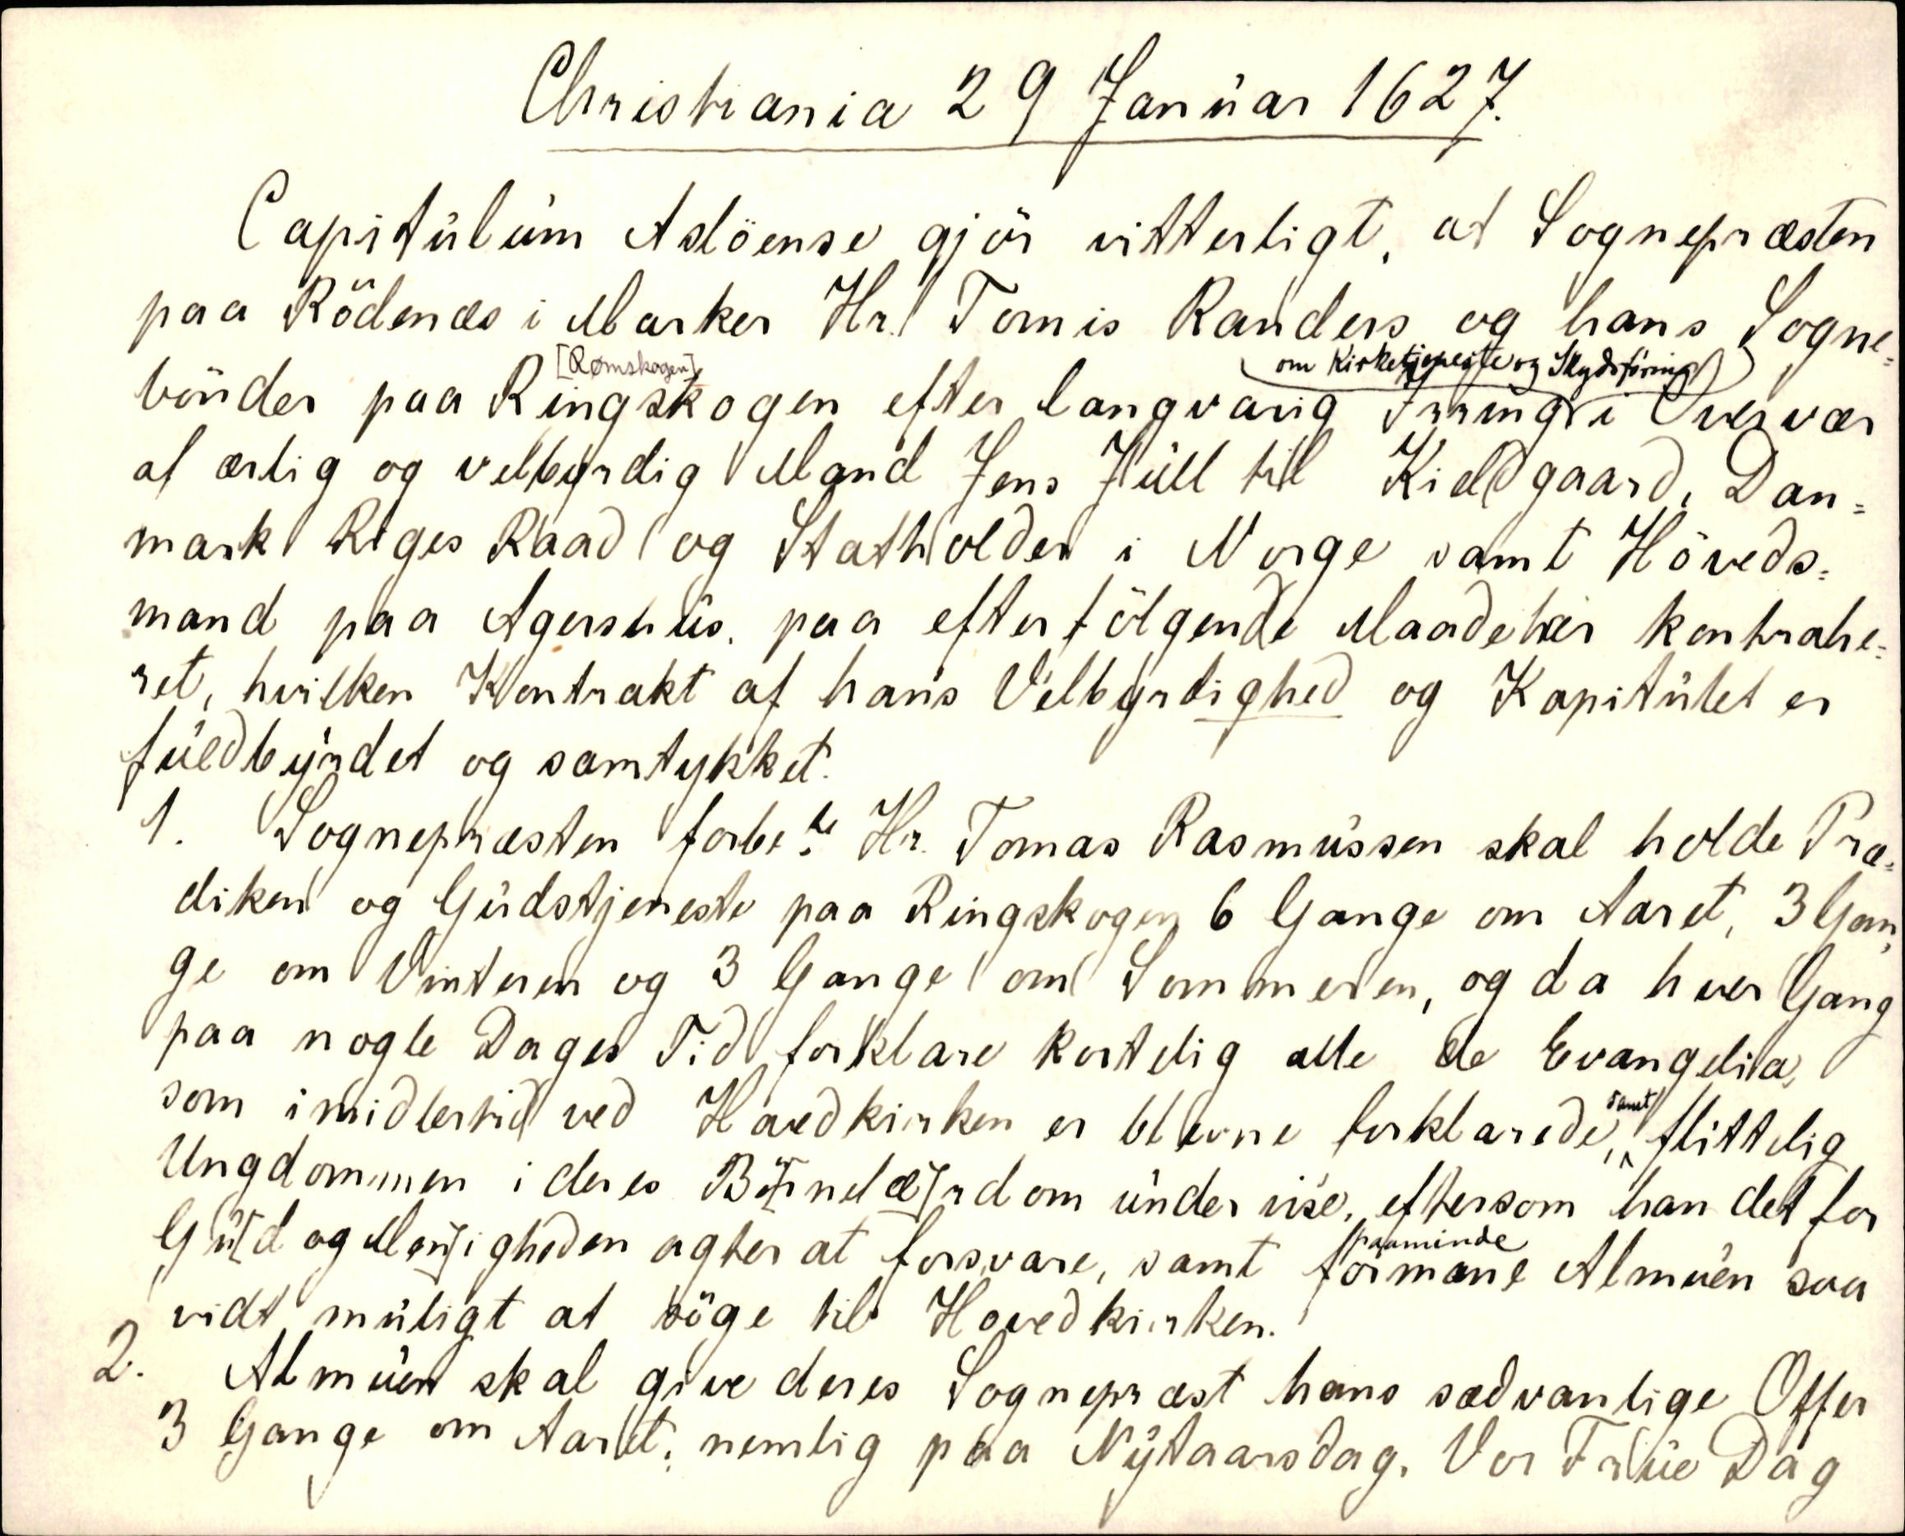 Christiania 29 Januar 1627.
Capitulum Asloense gjör vitterligt, at Sognepræsten
paa Rödenæs i Marker Hr. Tomis Randers og hans Sogne=
[Rømskogen]
om Kirketjeneste og Skydsföring
bönder paa Ringskogen efter langvarig Irring i Overvær
af ærlig og velbyrdig Mand Jens Jull til Kieldgaard, Dan=
mark Riges Raad og Statholder i Norge samt Höveds=
mand paa Agershus. paa efterfölgende Maade her kontrahe=
ret, hvilken Kontrakt af hans Velbyrdighed og Kapitulet er
fuldbyrdet og samtykket.
1. Sognepræsten forbe.te Hr. Tomas Rasmussen skal holde Præ=
diken og Gudstjeneste paa Ringskogen 6 Gange om Aaret, 3 Gan=
ge om Vinteren og 3 Gange om Sommeren, og da hver Gang
paa nogle Dages Tid forklare kortelig alle de Evangelia,
som imidlertid ved Hovedkirken er blevne forklarede, samt flittelig
Ungdommen i deres Bö[r]nelæ[r]dom undervise, eftersom han det for
Gu[d og Men]igheden agter at forsvare, samt formane Almuen saa
paaminde
vidt muligt at söge til Hovedkirken.
2. Almuen skal give deres Sognepræst hans sædvanlige Offer
3 Gange om Aaret, nemlig paa Nytaarsdag, Vor Frue Dag